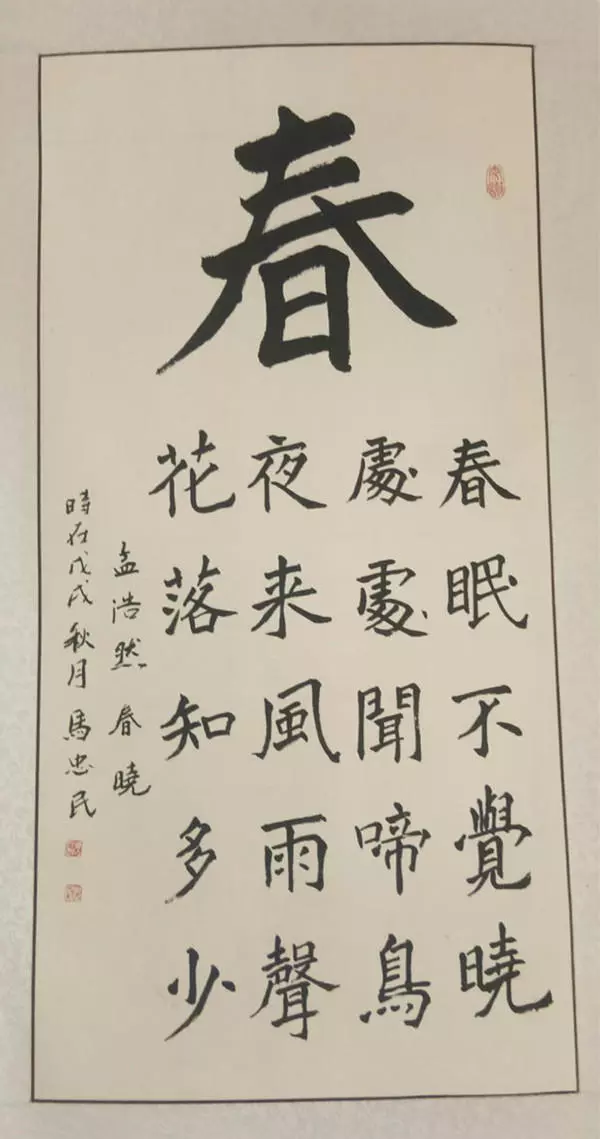 春
春眠不覺曉
處處聞啼鳥
夜来風雨聲
花落知多少
孟浩然春曉
時在戊戌秋月馬忠民